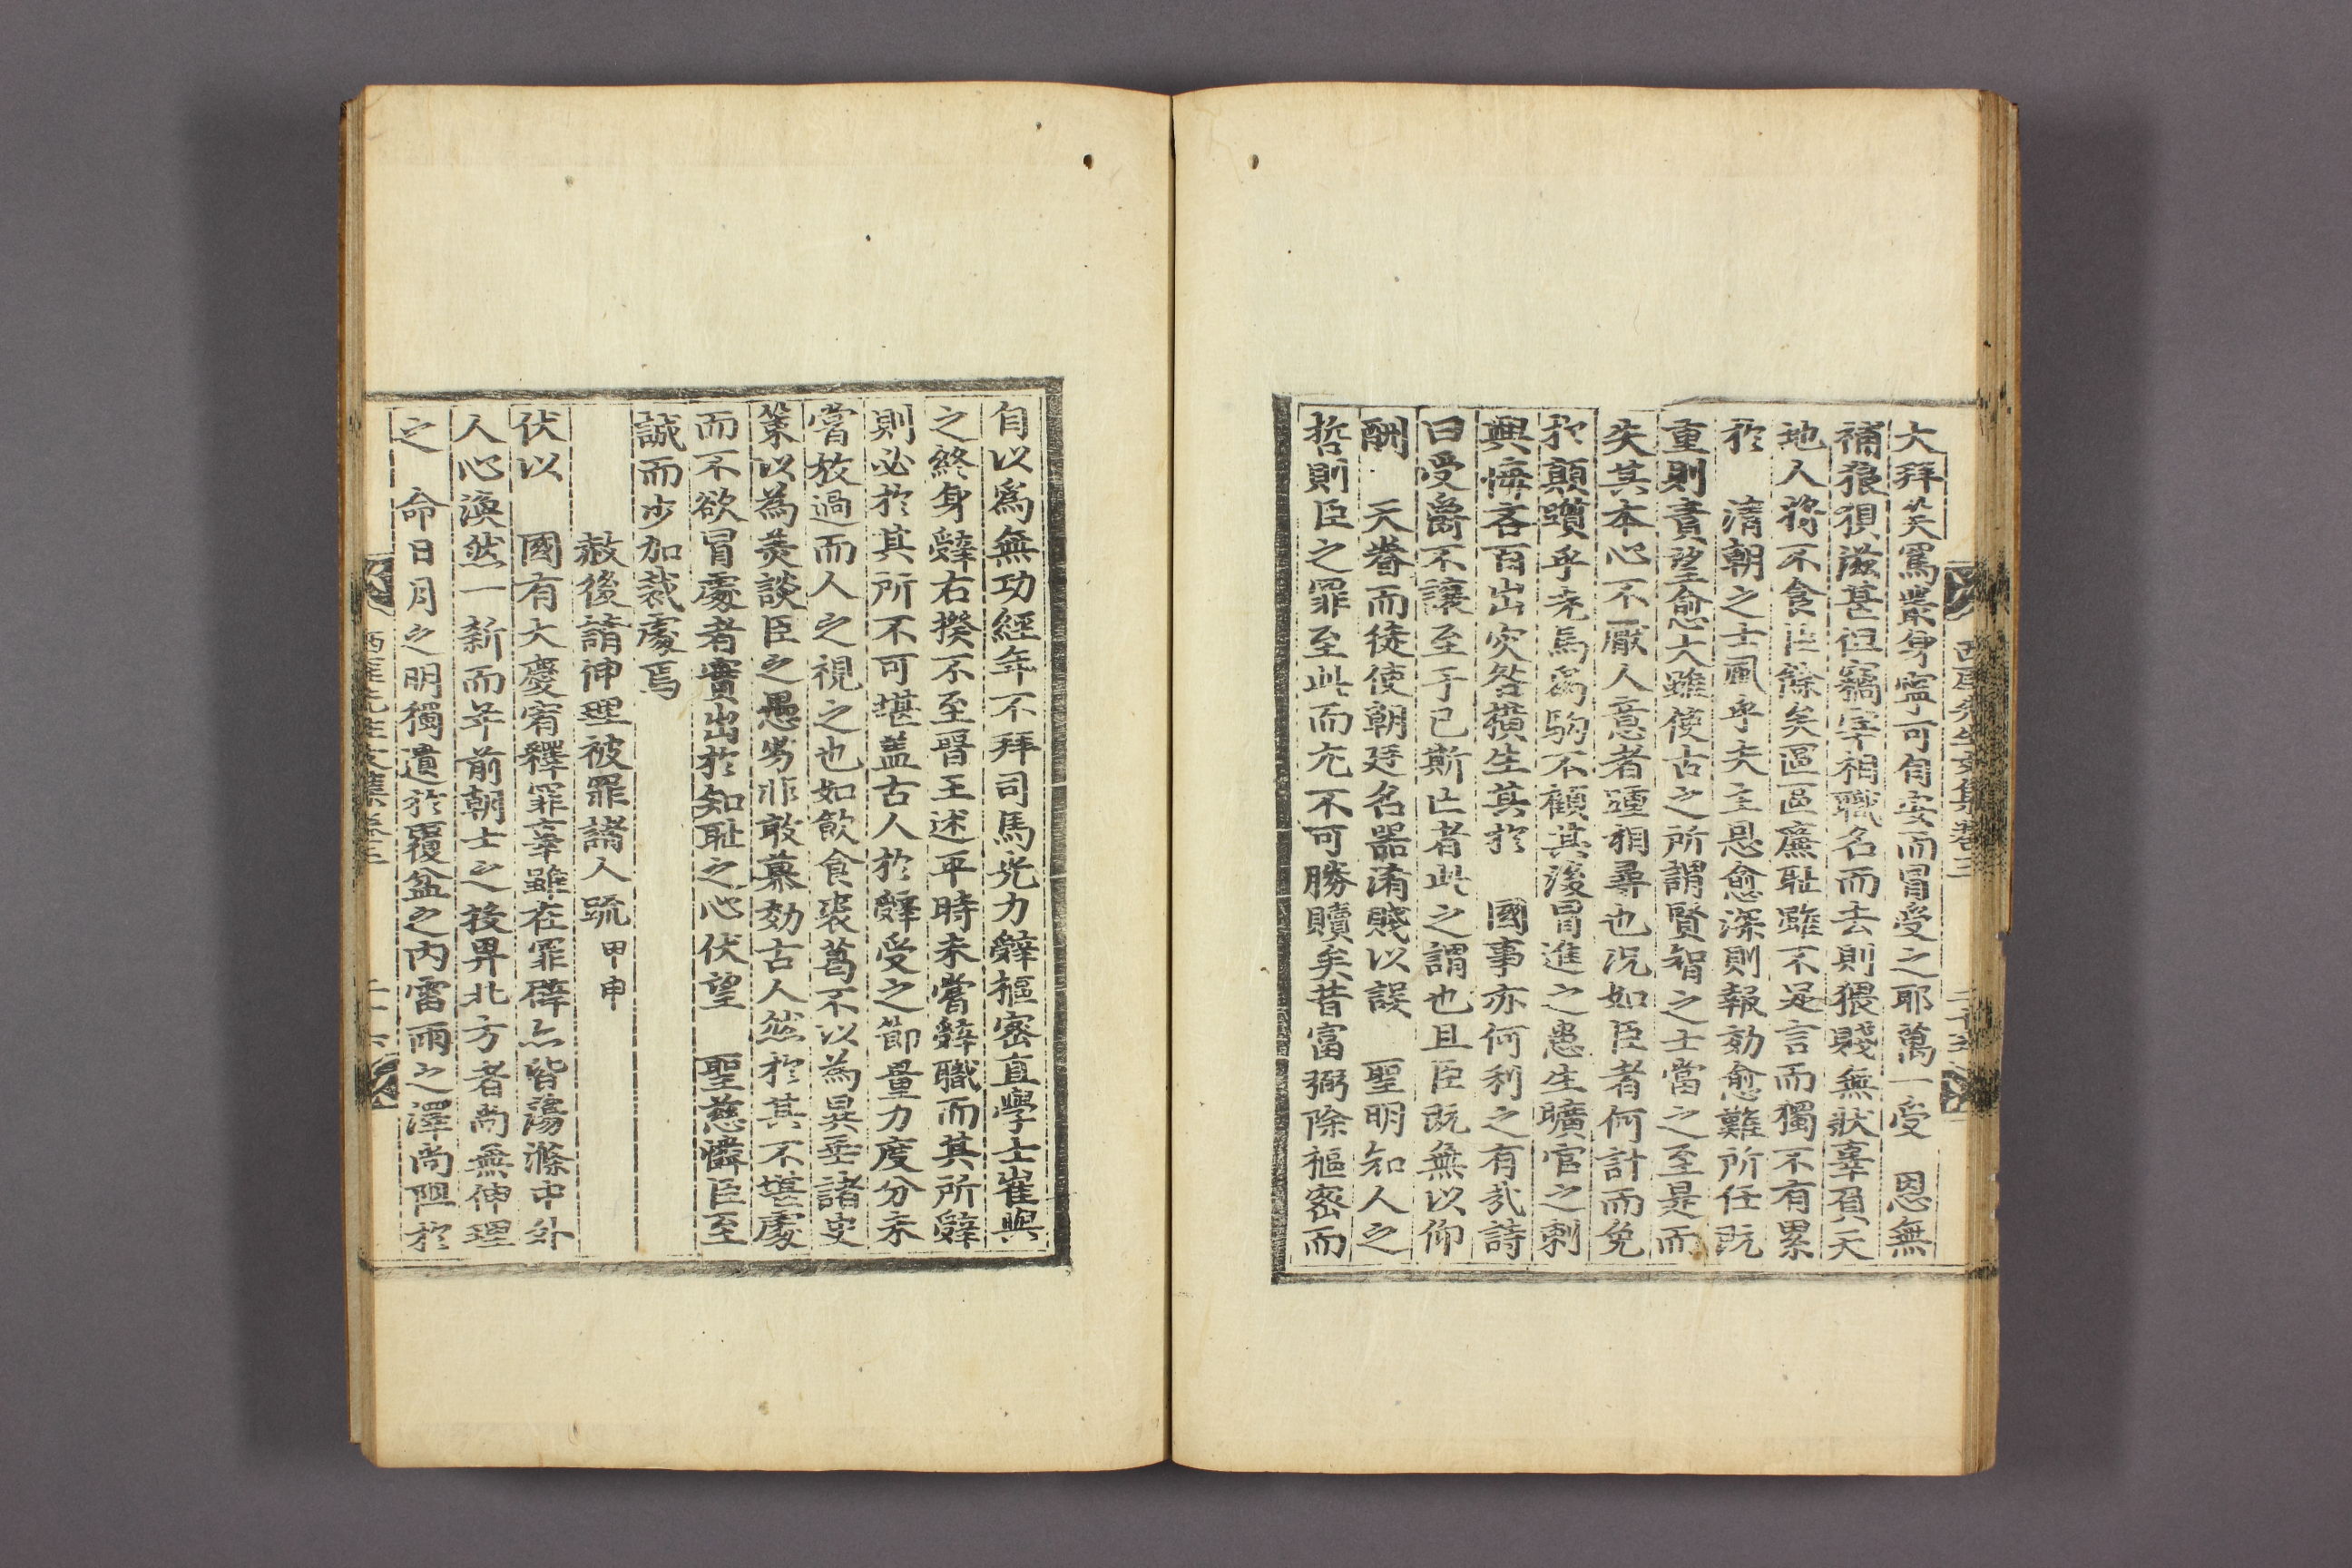 西厓先生文集卷三
大拜災罵叢身寧可自安而冒受之耶萬一受 恩無
補狼狽滋甚但竊宰相職名而去則猥賤無狀辜負天
地人將不食臣餘矣區區廉耻雖不足言而獨不有累
於 清朝之士風乎夫主恩愈深則報効愈難所任旣
重則責望愈大雖使古之所謂賢智之士當之至是而
失其本心不厭人意者踵相尋也況如臣者何計而免
於顚躓乎老馬爲駒不顧其後冒進之患生曠官之刺
興悔吝百出灾咎橫生其於 國事亦何利之有哉詩
曰受爵不讓至于已斯亡者此之謂也且臣旣無以仰
酬 天眷而徒使朝廷名器淆賤以誤 聖明知人之
哲則臣之罪至此而尤不可勝贖矣昔富弼除樞密而
自以爲無功經年不拜司馬光力辭樞密直學士崔與
之終身辭右揆不至晋王述平時未嘗辭職而其所辭
則必於其所不可堪盖古人於辭受之節量力度分未
嘗放過而人之視之也如飮食裘葛不以為異垂諸史
策以為美談臣之愚劣非敢慕効古人然於其不堪處
而不欲冒處者實出於知耻之心伏望 聖慈憐臣至
誠而少加裁處焉
赦後請伸理被罪諸人疏 甲申
伏以 國有大慶宥釋罪辜雖在罪辟亦皆蕩滌中外
人心渙然一新而年前朝士之投畀北方者尙無伸理
之 命日月之明獨遺於覆盆之內雷雨之澤尙阻於
西厓先生文集卷三